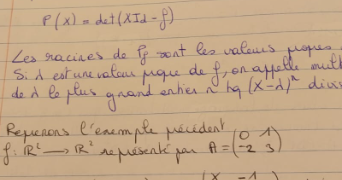 P(X) = det(XId - f)
Les racines de Pf sont les valeurs propres
Si λ est une valeur propre de f, on appelle mult
de λ le plus grand entier n tq (X-λ)^n divis
Reprenons l'exemple précédent
f: ℝ² → ℝ² représenté par A = (0 1
-2 3)
(X -1